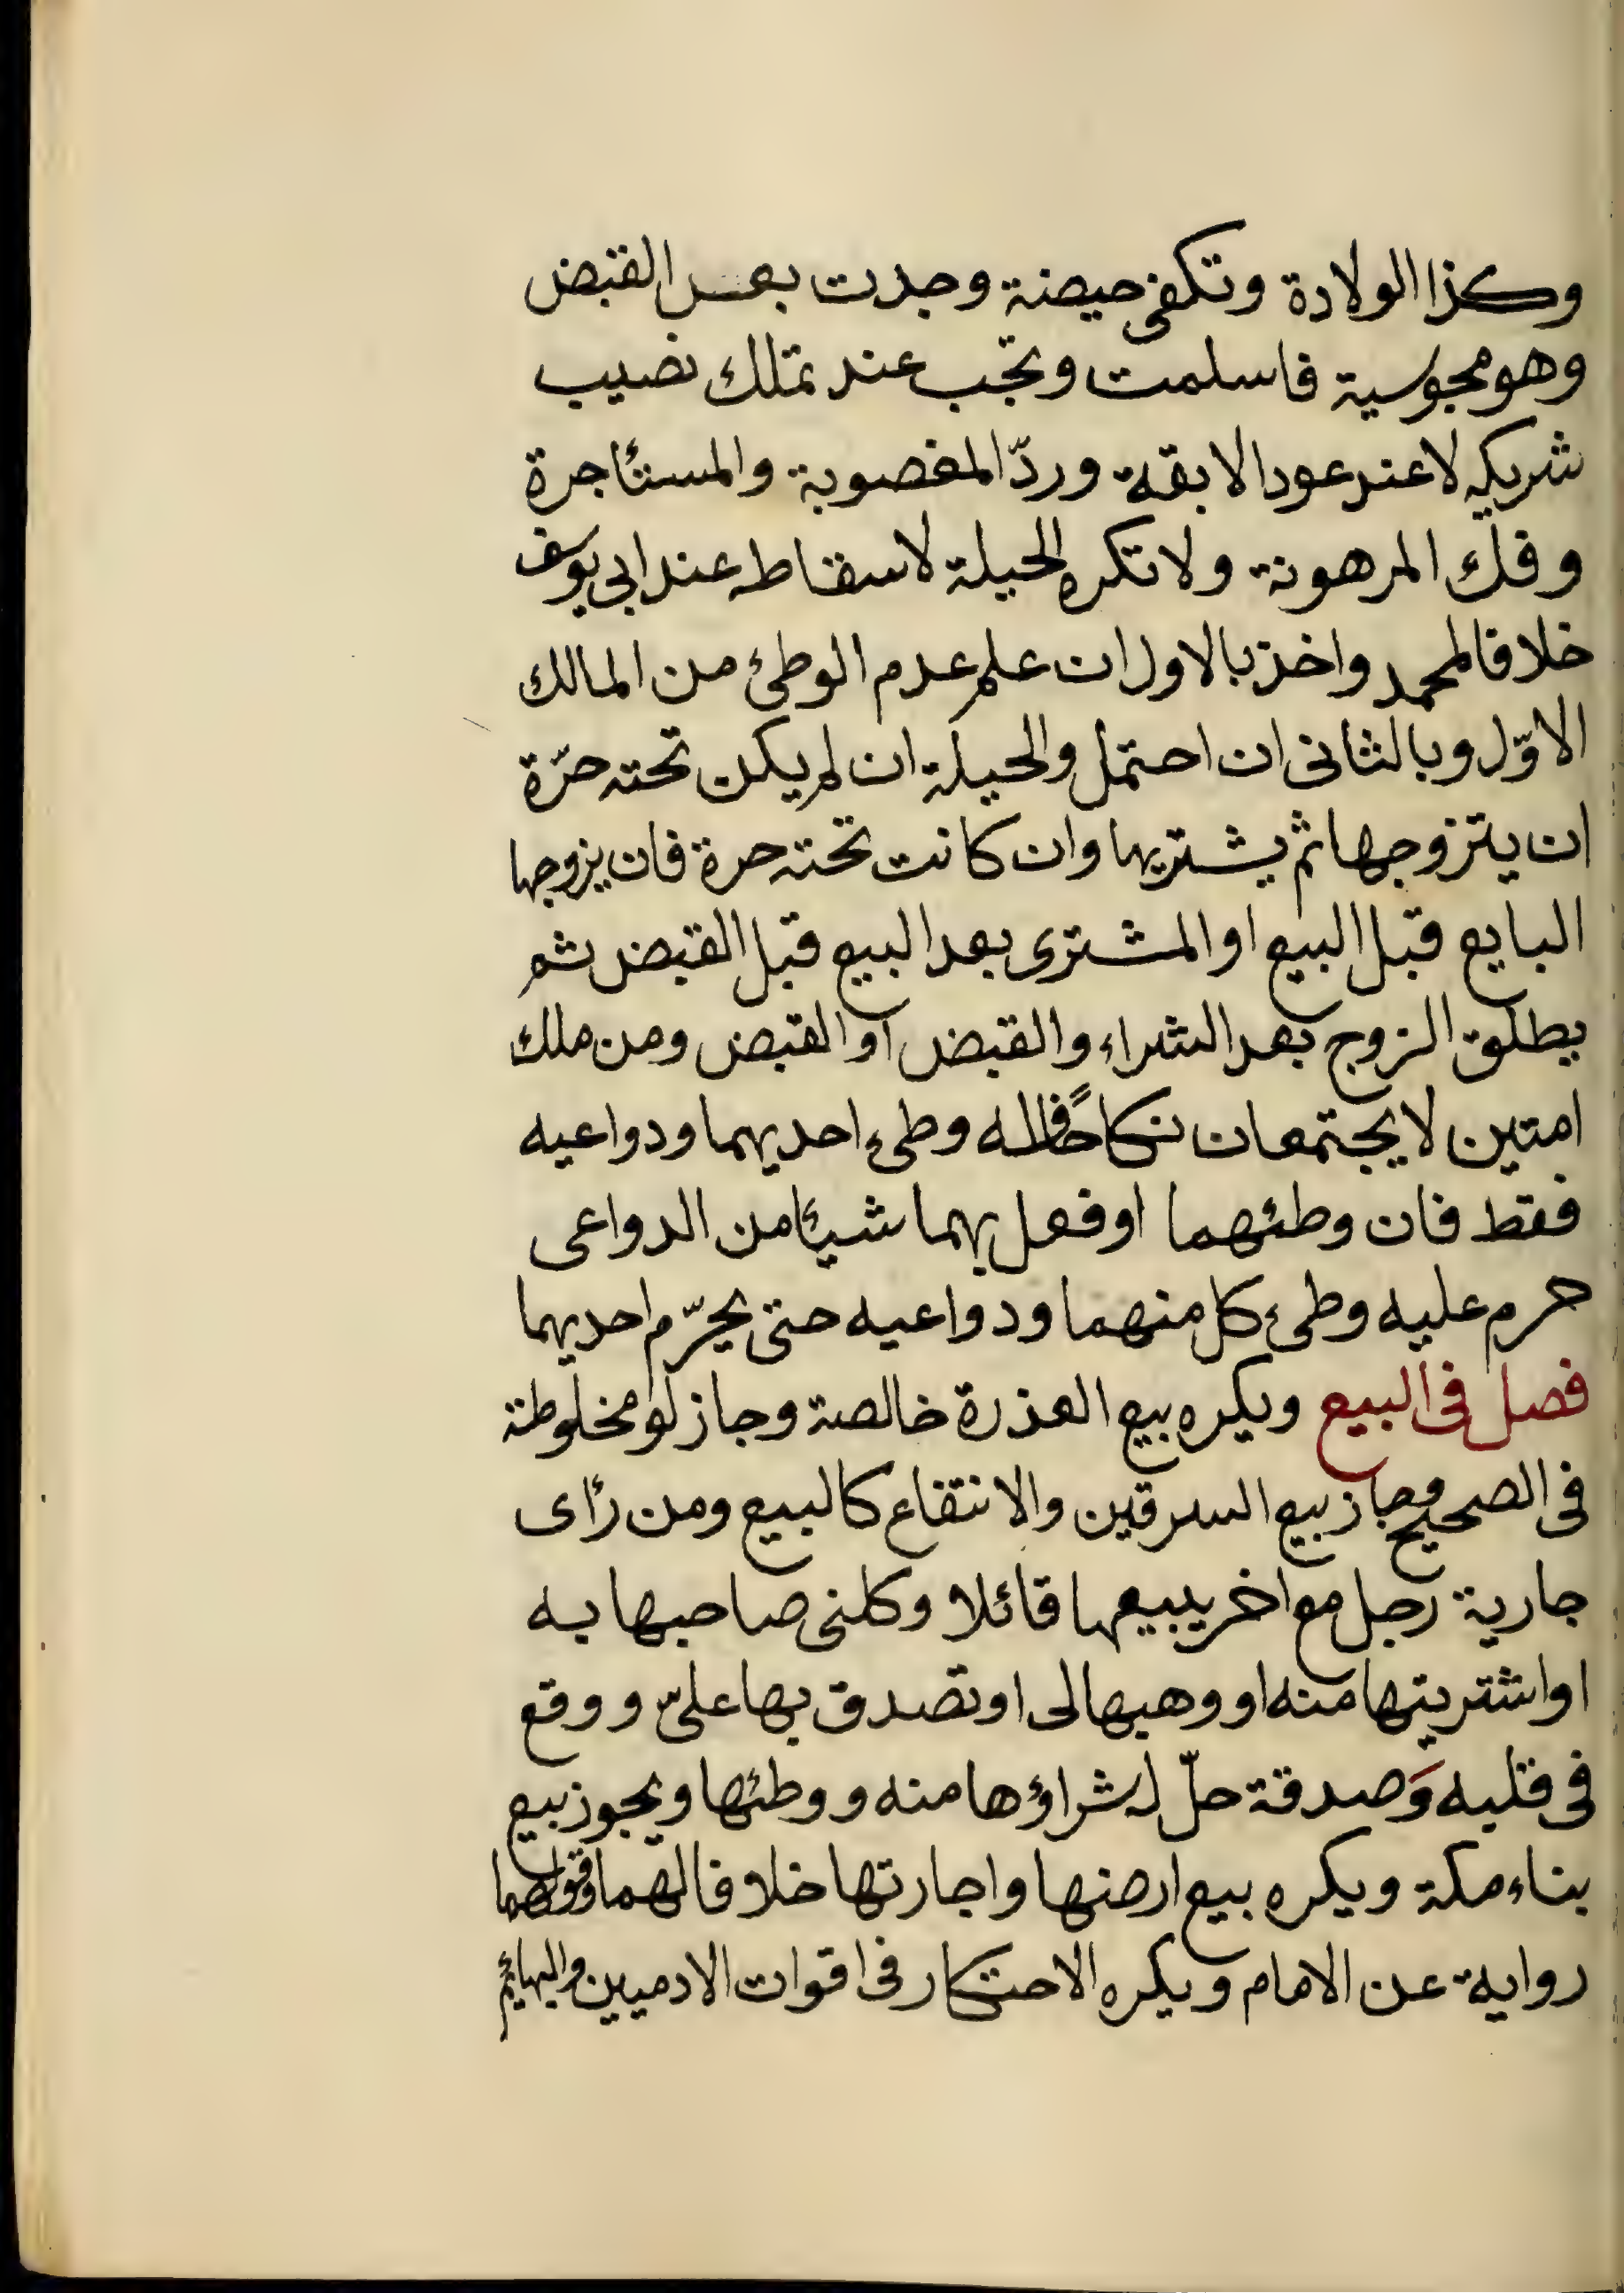 وكذا الولادة وتكفى حيضة وجدت بعد القبض
وهو مجوسية فاسلمت وتجب عند تملك نصيب
شريكه لا عند عود الابقة وردّ المغصوبة والمستأجرة
وفك المرهونة ولا تكره الحيلة لاسقاطه عند ابى يوسف
خلافا لمحمد واخذ بالاول ان علم عدم الوطئ من المالك
الاوّل وبالثانى ان احتمل والحيلة ان لم يكن تحته حرّة
ان يتزوجها ثم يشتريها وان كانت تحته حرة فان يزوجها
البايع قبل البيع او المشترى بعد البيع قبل القبض ثم
يطلق الزوج بعد الشراء والقبض او القبض ومن ملك
امتين لا يجتمعان نكاحًا فله وطىء احديهما ودواعيه
فقط فان وطئهما او فعل بهما شيئا من الدواعى
حرم عليه وطىء كل منهما ودواعيه حتى يحرّم احديهما
فصل فى البيع ويكره بيع العذرة خالصة وجاز لو مخلوطة
فى الصحيح وجاز بيع السرقين والانتفاع كالبيع ومن رأى
جارية رجل مع اخر يبيعها قائلا وكلنى صاحبها به
او اشتريتها منه او وهبها لى او تصدق بها علىّ ووقع
فى قلبه وَصدقة حلّ له شراؤها منه ووطئها ويجوز بيع
بناء مكة ويكره بيع ارضها واجارتها خلافا لهما وقولهما
رواية عن الامام ويكره الاحتكار فى اقوات الادميين والبهائم